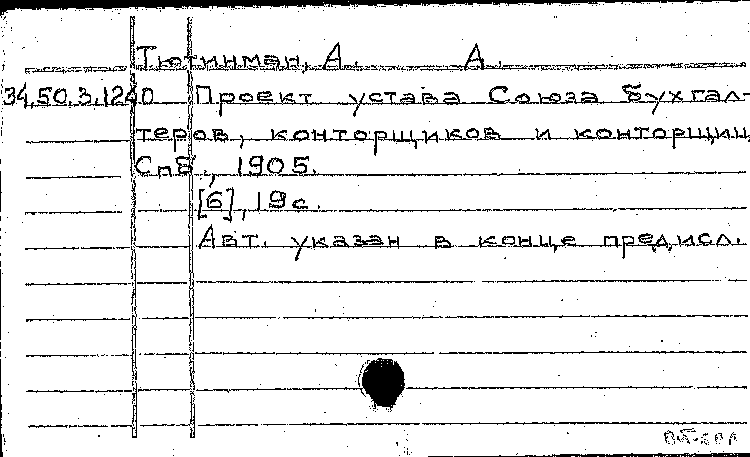 Тютинман, А. А.
34.50.3.1240 Проект устава Союза бухгал-
теров, конторщиков и конторщиц,
Спб., 1905.
[6], 19с.
Авт. указан в конце предисл.